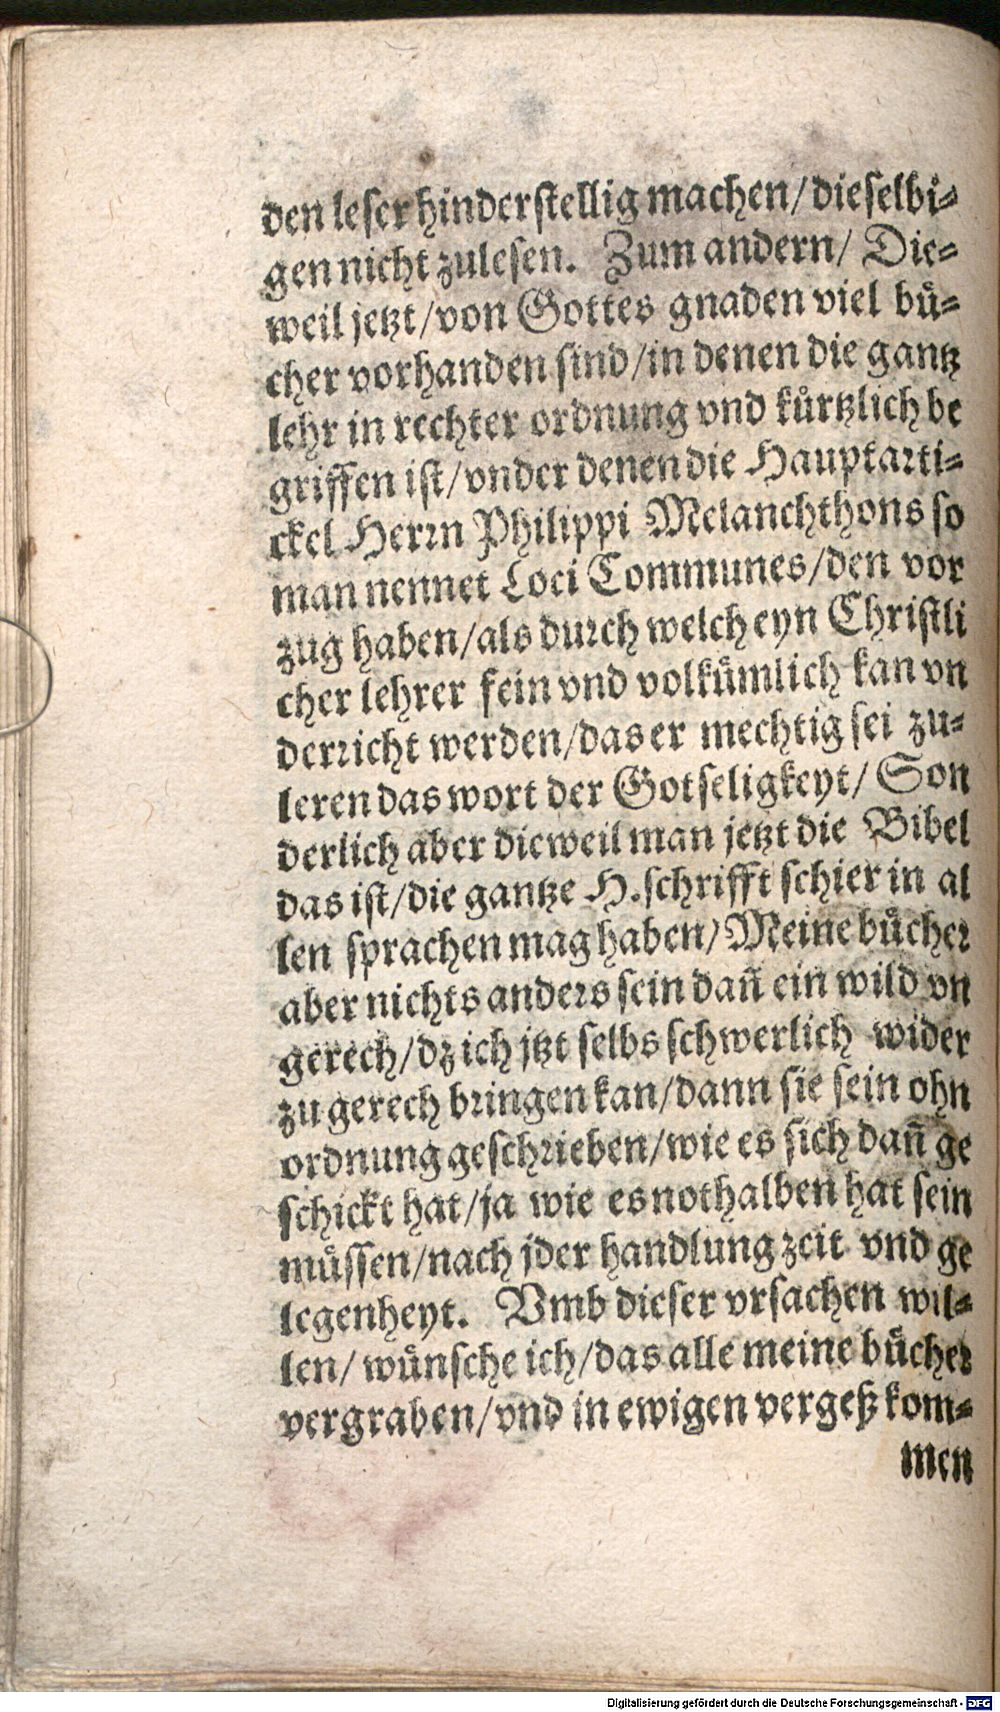 den leser hinderstellig machen/ dieselbi⸗
gen nicht zulesen. Zum andern/ Die⸗
weil jetzt/von Gottes gnaden viel buͤ⸗
cher vorhanden sind/in denen die gantz
lehr in rechter ordnung vnd kuͤrtzlich be
griffen ist/vnder denen die Hauptarti⸗
ckel Herrn Philippi Melanchthons so
man nennet Loci Communes/den vor
zug haben/als durch welch eyn Christli
cher lehrer fein vnd volkuͤmlich kan vn
derricht werden/das er mechtig sei zu⸗
leren das wort der Gotseligkeyt/ Son
derlich aber dieweil man jetzt die Bibel
das ist/die gantze H.schrifft schier in al
len sprachen mag haben/Meine buͤcher
aber nichts anders sein dañ ein wild vn
gerech/dz ich jtzt selbs schwerlich wider
zu gerech bringen kan/dann sie sein ohn
ordnung geschrieben/wie es sich dañ ge
schickt hat/ja wie es nothalben hat sein
muͤssen/nach jder handlung zeit vnd ge
legenheyt. Vmb dieser vrsachen wil⸗
len/ wuͤnsche ich/das alle meine buͤcher
vergraben/vnd in ewigen vergeß kom⸗
men
Digitalisierung gefördert durch die Deutsche Forschungsgemeinschaft - DFG